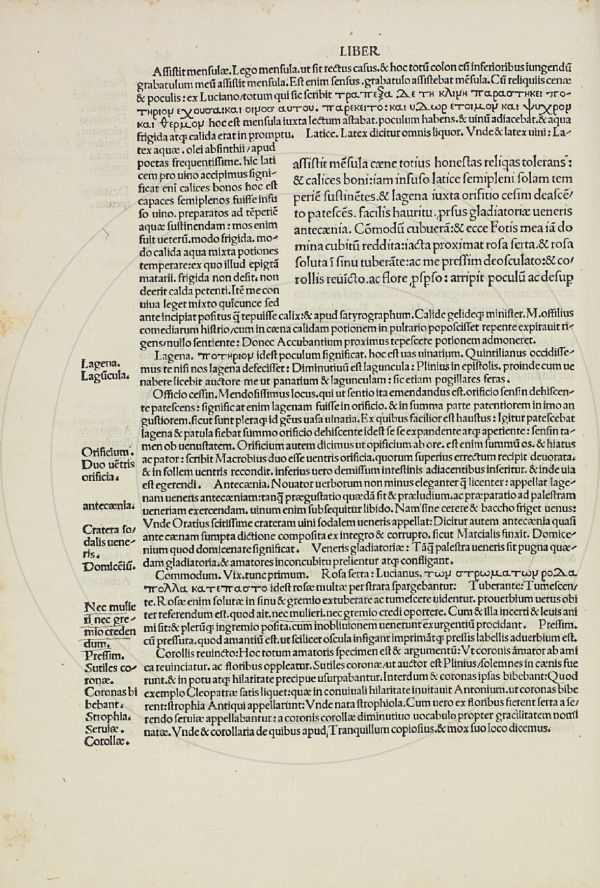 LIBER
Assistit mensulæ. Lego mensula. ut sit rectus casus. & hoc totũ colon cũ inferioribus iungendũ
grabatulum meũ assistit mensula. Est enim sensus. grabatulo assistebat mẽsula. Cũ reliquiis cenæ
& poculis: ex Luciano/totum qui sic scribit τραπεξα Δε τη κλινη παραστηκει πο-
τηριον εχουσαικαι οινοσ αυτου. παρεκειτο: και υΔωρ ετοιμον και ψυχρον
και θερμον hoc est mensula iuxta lectum astabat. poculum habens. & uinũ adiacebat. & aqua
frigida atq; calida etat in promptu. Latice. Latex dicitur omnis liquor. Vnde & latex uini: La-
tex aquæ. olei absinthii/apud
poetas frequentissime. hic lati
cem pro uino accipimus signi-
ficat eni calices bonos hoc est
capaces semiplenos fuisse infu
so uino. preparatos ad tẽperiẽ
aquæ sustinendam: mos enim
fuit ueterũ. modo frigida. mo-
do calida aqua mixta potiones
temperare: ex quo illud epigrã
matarii. frigida non desit. non
deerit calda petenti. Itẽ me con
uiua leget mixto quicunce sed
assistit mẽsula cæne totius honestas reliqas tolerans:
& calices boni: iam infuso latice semipleni solam tem
periẽ sustinẽtes. & lagena iuxta orificio cesim deascẽ-
to patescẽs. facilis hauritu. prsus gladiatoriæ ueneris
antecænia. Cõmodũ cubuerã: & ecce Fotis mea iã do
mina cubitũ reddita: iacta proximat rosa serta. & rosa
soluta ĩ sinu tuberante: ac me pressim deosculato: & co
rollis reuicto. ac flore. pspso: arripit poculũ ac desup
ante incipiat positus q̃ tepuisse calix: & apud satyrographum. Calide gelideq; minister. M. offilius
comediarum histrio/cum in cæna calidam potionem in pultario poposcisset repente expirauit ri-
gens/nullo sentiente: Donec Accubantium proximus tepescere potionem admoneret.
Lagena.
Lagũcula.
Lagena. ποτηριον idest poculum significat. hoc est uas uinarium. Quintilianus occidisse-
mus te nisi nos lagena defecisset: Diminutiuũ est laguncula: Plinius in epistolis. proinde cum ue
nabere licebit auctore me ut panarium & lagunculam: sic etiam pugillares feras.
Officio cessin. Mendosissimus locus. qui ut sentio ita emendandus est. orificio sensin dehiscen-
te patescens: significat enim lagenam fuisse in orificio. & in summa parte patentiorem in imo an
gustiorem. sicut sunt pleraq; id gẽus uasa uinaria. Ex quibus facilior est haustus: Igitur patescebat
lagena & patula fiebat summo orificio dehiscente idest se se expandente atq; aperiente: sensin ta-
men ob uenustatem. Orificium autem dicimus ut opificium ab ore. est enim summũ os. & hiatus
Orificium.
Duo uẽtris
orificia.
ac pator: scribit Macrobius duo esse uentris orificia. quorum superius errectum recipit deuorata.
& in follem uentris recondit. inferius uero demissum intestinis adiacentibus inseritur. & inde uia
est egerendi. Antecænia. Nouator uerborum non minus eleganter q̃ licenter: appellat lage-
antecænia.
nam ueneris antecæniam: tanq̃ prægustatio quædã sit & præludium. ac præparatio ad palestram
ueneriam exercendam. uinum enim subsequitur libido. Nam sine cerere & baccho friget uenus:
Cratera so/
dalis uene-
ris.
Domicẽiũ.
Vnde Oratius scitissime crateram uini sodalem ueneris appellat: Dicitur autem antecænia quasi
ante cænam sumpta dictione composita ex integro & corrupto. sicut Marcialis finxit. Domice-
nium quod domicenare significat. Veneris gladiatoriæ: Tãq̃ palestra ueneris sit pugna quæ-
dam gladiatoria. & amatores inconcubitu prelientur atq; confligant.
Commodum. Vix. tunc primum. Rosa serta: Lucianus. των στρωματων ροΔα
πολλα κατεπαστο idest rosæ multæ per strata spargebantur: Tuberante: Tumescen-
te. Rosæ enim solutæ in sinu & gremio extuberare ac tumescere uidentur. prouerbium uetus obi
Nec mulie
ri nec gre-
mio creden
dum.
ter referendum est. quod ait. nec mulieri. nec gremio credi oportere. Cum & illa incerti & leuis ani
mi sit: & plerũq; ingremio posita. cum inobliuionem uenerunt exurgentiũ procidant. Pressim.
Pressim.
cũ pressura. quod amantiũ est. ut scilicet oscula infigant imprimãtq; pressis labellis aduerbium est.
Sutiles co-
ronæ.
Coronas bi
bebant.
Strophia.
Seruiæ.
Corollæ.
Corollis reuincto: Hoc totum amatoris specimen est & argumentũ: Vt coronis ãmator ab ami
ca reuinciatur. ac floribus oppleatur. Sutiles coronæ/ut auctor est Plinius/solemnes in cænis fue
runt. & in potu atq; hilaritate precipue usurpabantur. Interdum & coronas ipsas bibebant: Quod
exemplo Cleopatræ satis liquet: quæ in conuiuali hilaritate inuitauit Antonium. ut coronas bibe
rent: strophia Antiqui appellarũt: Vnde nata strophiola. Cum uero ex floribus fierent serta a se/
rendo seruiæ appellabantur: a coronis corollæ diminutiuo uocabulo propter gracilitatem nomĩ
natæ. Vnde & corollaria de quibus apud, Tranquillum copiosius. & mox suo loco dicemus.